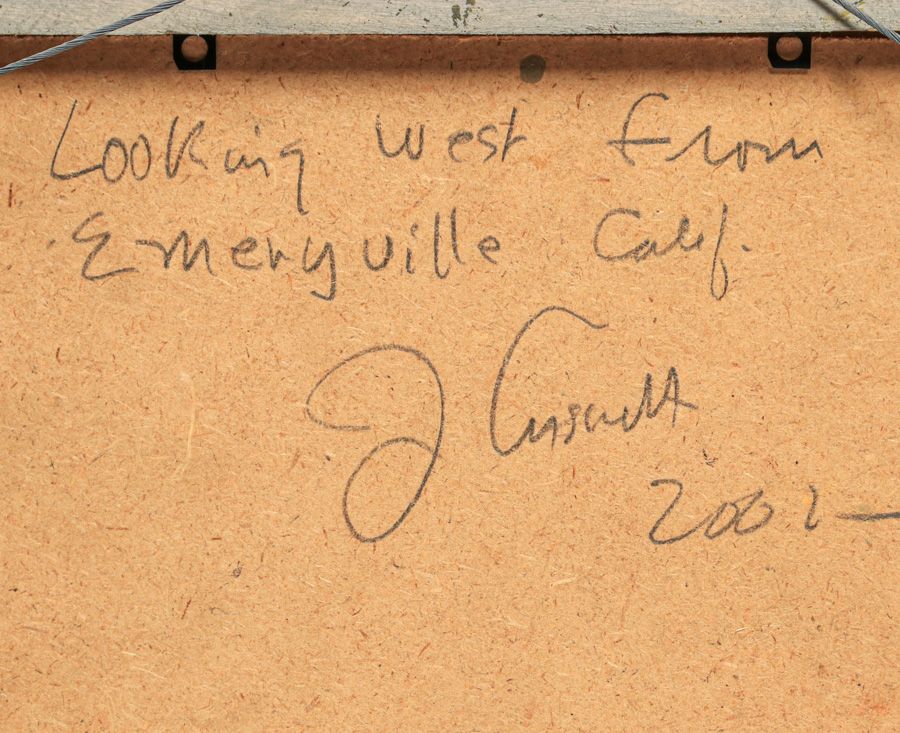 Looking West from
Emeryville Calif.
J
200